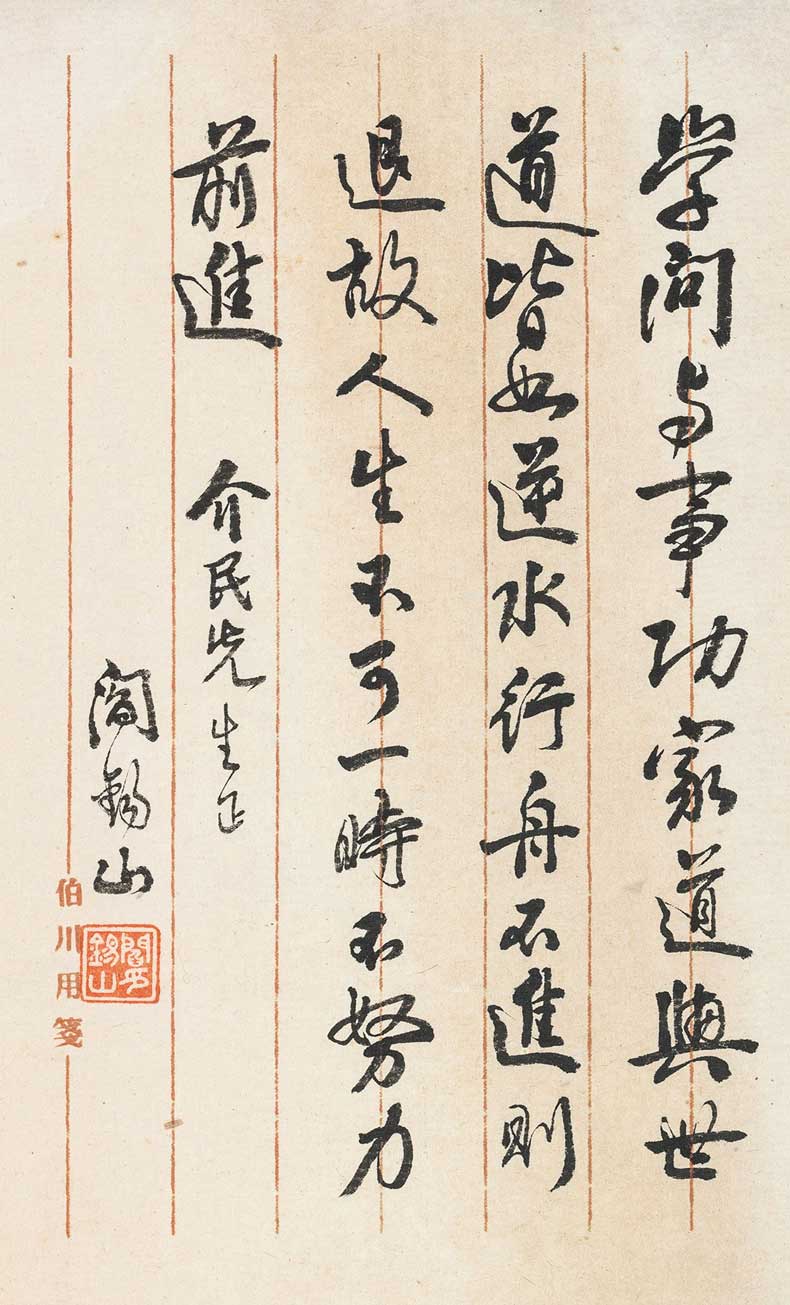 学问与事功家道與世
道皆如逆水行舟不進則
退故人生不可一時不努力
前進 介民先生正
閻錫山
閻錫山印
伯川用箋